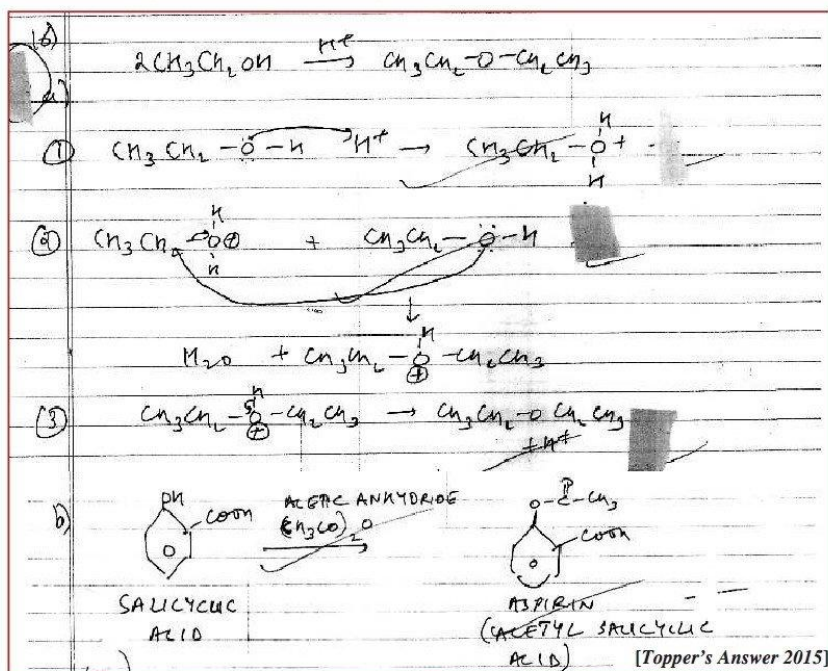 (b)
2CH3CH2OH H+ → CH3CH2-O-CH2CH3
a)
① CH3CH2-Ö-H H+ → CH3CH2-O+ -
H
H
② CH3CH2-O⊕ + CH3CH2-Ö-H
H
H
↓
H2O + CH3CH2-O-CH2CH3
H
⊕
③ CH3CH2-O-CH2CH3 → CH3CH2-O CH2CH3
H
⊕
+H+
b) OH COOH ACETIC ANHYDRIDE O-C-CH3
O
(CH3CO)2O → COOH
SALICYCLIC ASPIRIN
ACID (ACETYL SALICYLIC
ACID)
[Topper's Answer 2015]